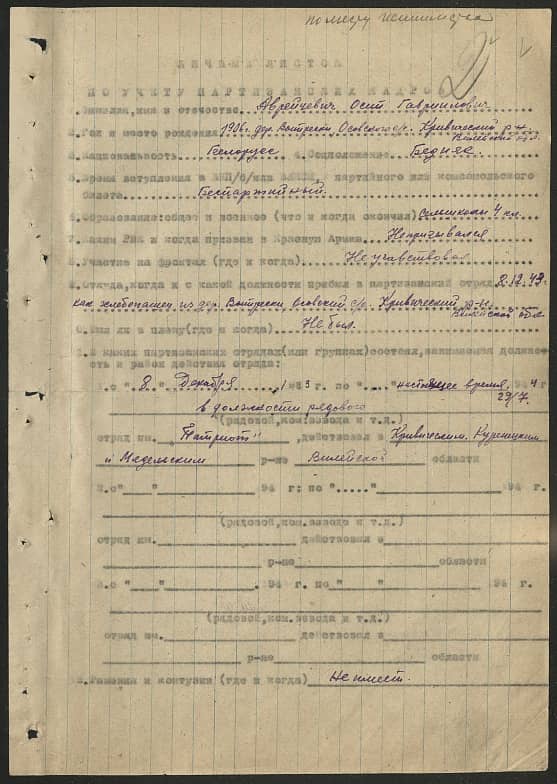 по месту жительства
2
ЛИЧНЫЙ ЛИСТОК
ПО УЧЕТУ ПАРТИЗАНСКИХ КАДРОВ
1. Фамилия, имя и отчество Аврейцевич Осип Гавриилович
2. Год и место рождения 1906г. дер. Осовского с/с. Кривичский р-н
Вилейской обл.
3. Национальность Белорус 4. Соцположение Бедняк.
5. Время вступления в ВКП/б/или ВЛКСМ, партийного или комсомольского
билета Беспартийный.
6. Образование: общее и военное (что и когда окончил) 4 кл.
7. Каким РВК и когда призван в Красную Армию Непризывался
8. Участие на фронтах (где и когда) Не участвовал
9. Откуда, когда и с какой должности прибыл в партизанский отряд 8.12.43
как хлебопашец из дер. Осовский с/с. Кривичский р-н.
Вилейской обл.
0. Был ли в плену (где и когда) Не был.
1. В каких партизанских отрядах (или группах) состоял, занимаемая должность
и район действия отряда:
1. с "8" Декабря 1943 г по "...." настоящее время 4 г
29/7.
в должности рядового
(рядовой, ком. взвода и т.д.)
отряд им. "Патриот" действовал в Кривическим. Куренецким
и Мядельским р-не Вилейской области
2. с " " 94 г: по "....." 94 г.
(рядовой, ком. взвода и т.д.)
отряд им. действовал в
р-не области
3. с " " 94 г. по " " 94 г.
(рядовой, ком. взвода и т.д.)
отряд им. действовал в
р-не области
Ранения и контузии (где и когда) Не имеет.